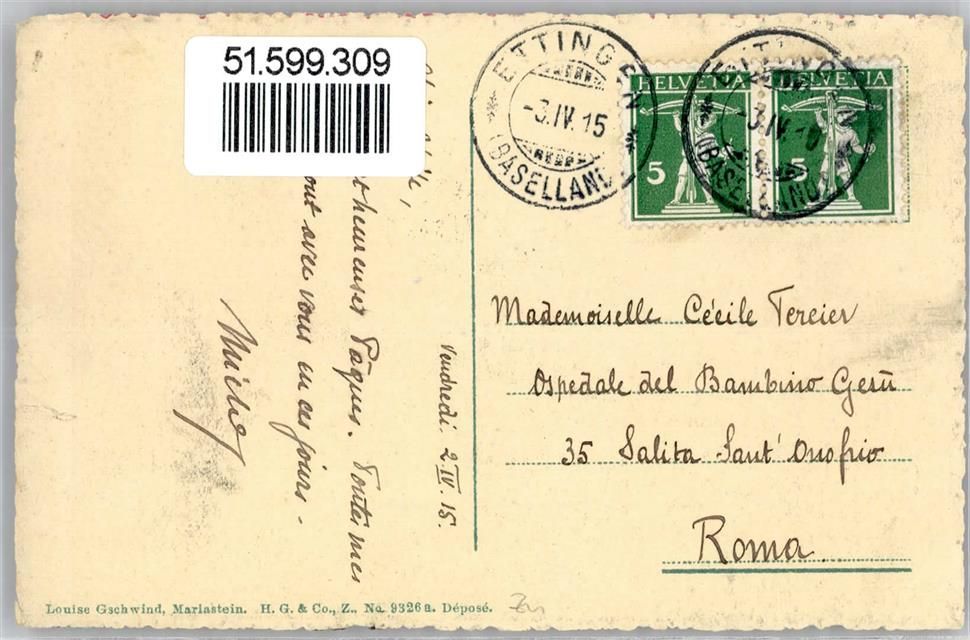 51.599.309
ETTINGEN
-3.IV.15
(BASELLAND)
HELVETIA
5
HELVETIA
5
Vendredi. 2.IV.15.
heureuses Pâques. Toutes mes
avec vous en ces jours.
Mademoiselle Cécile Tercier
Ospedale del Bambino Gesù
35 Salita Sant' Onofrio
Roma
Louise Gschwind, Mariastein. H. G. & Co., Z., No. 9326a. Déposé.